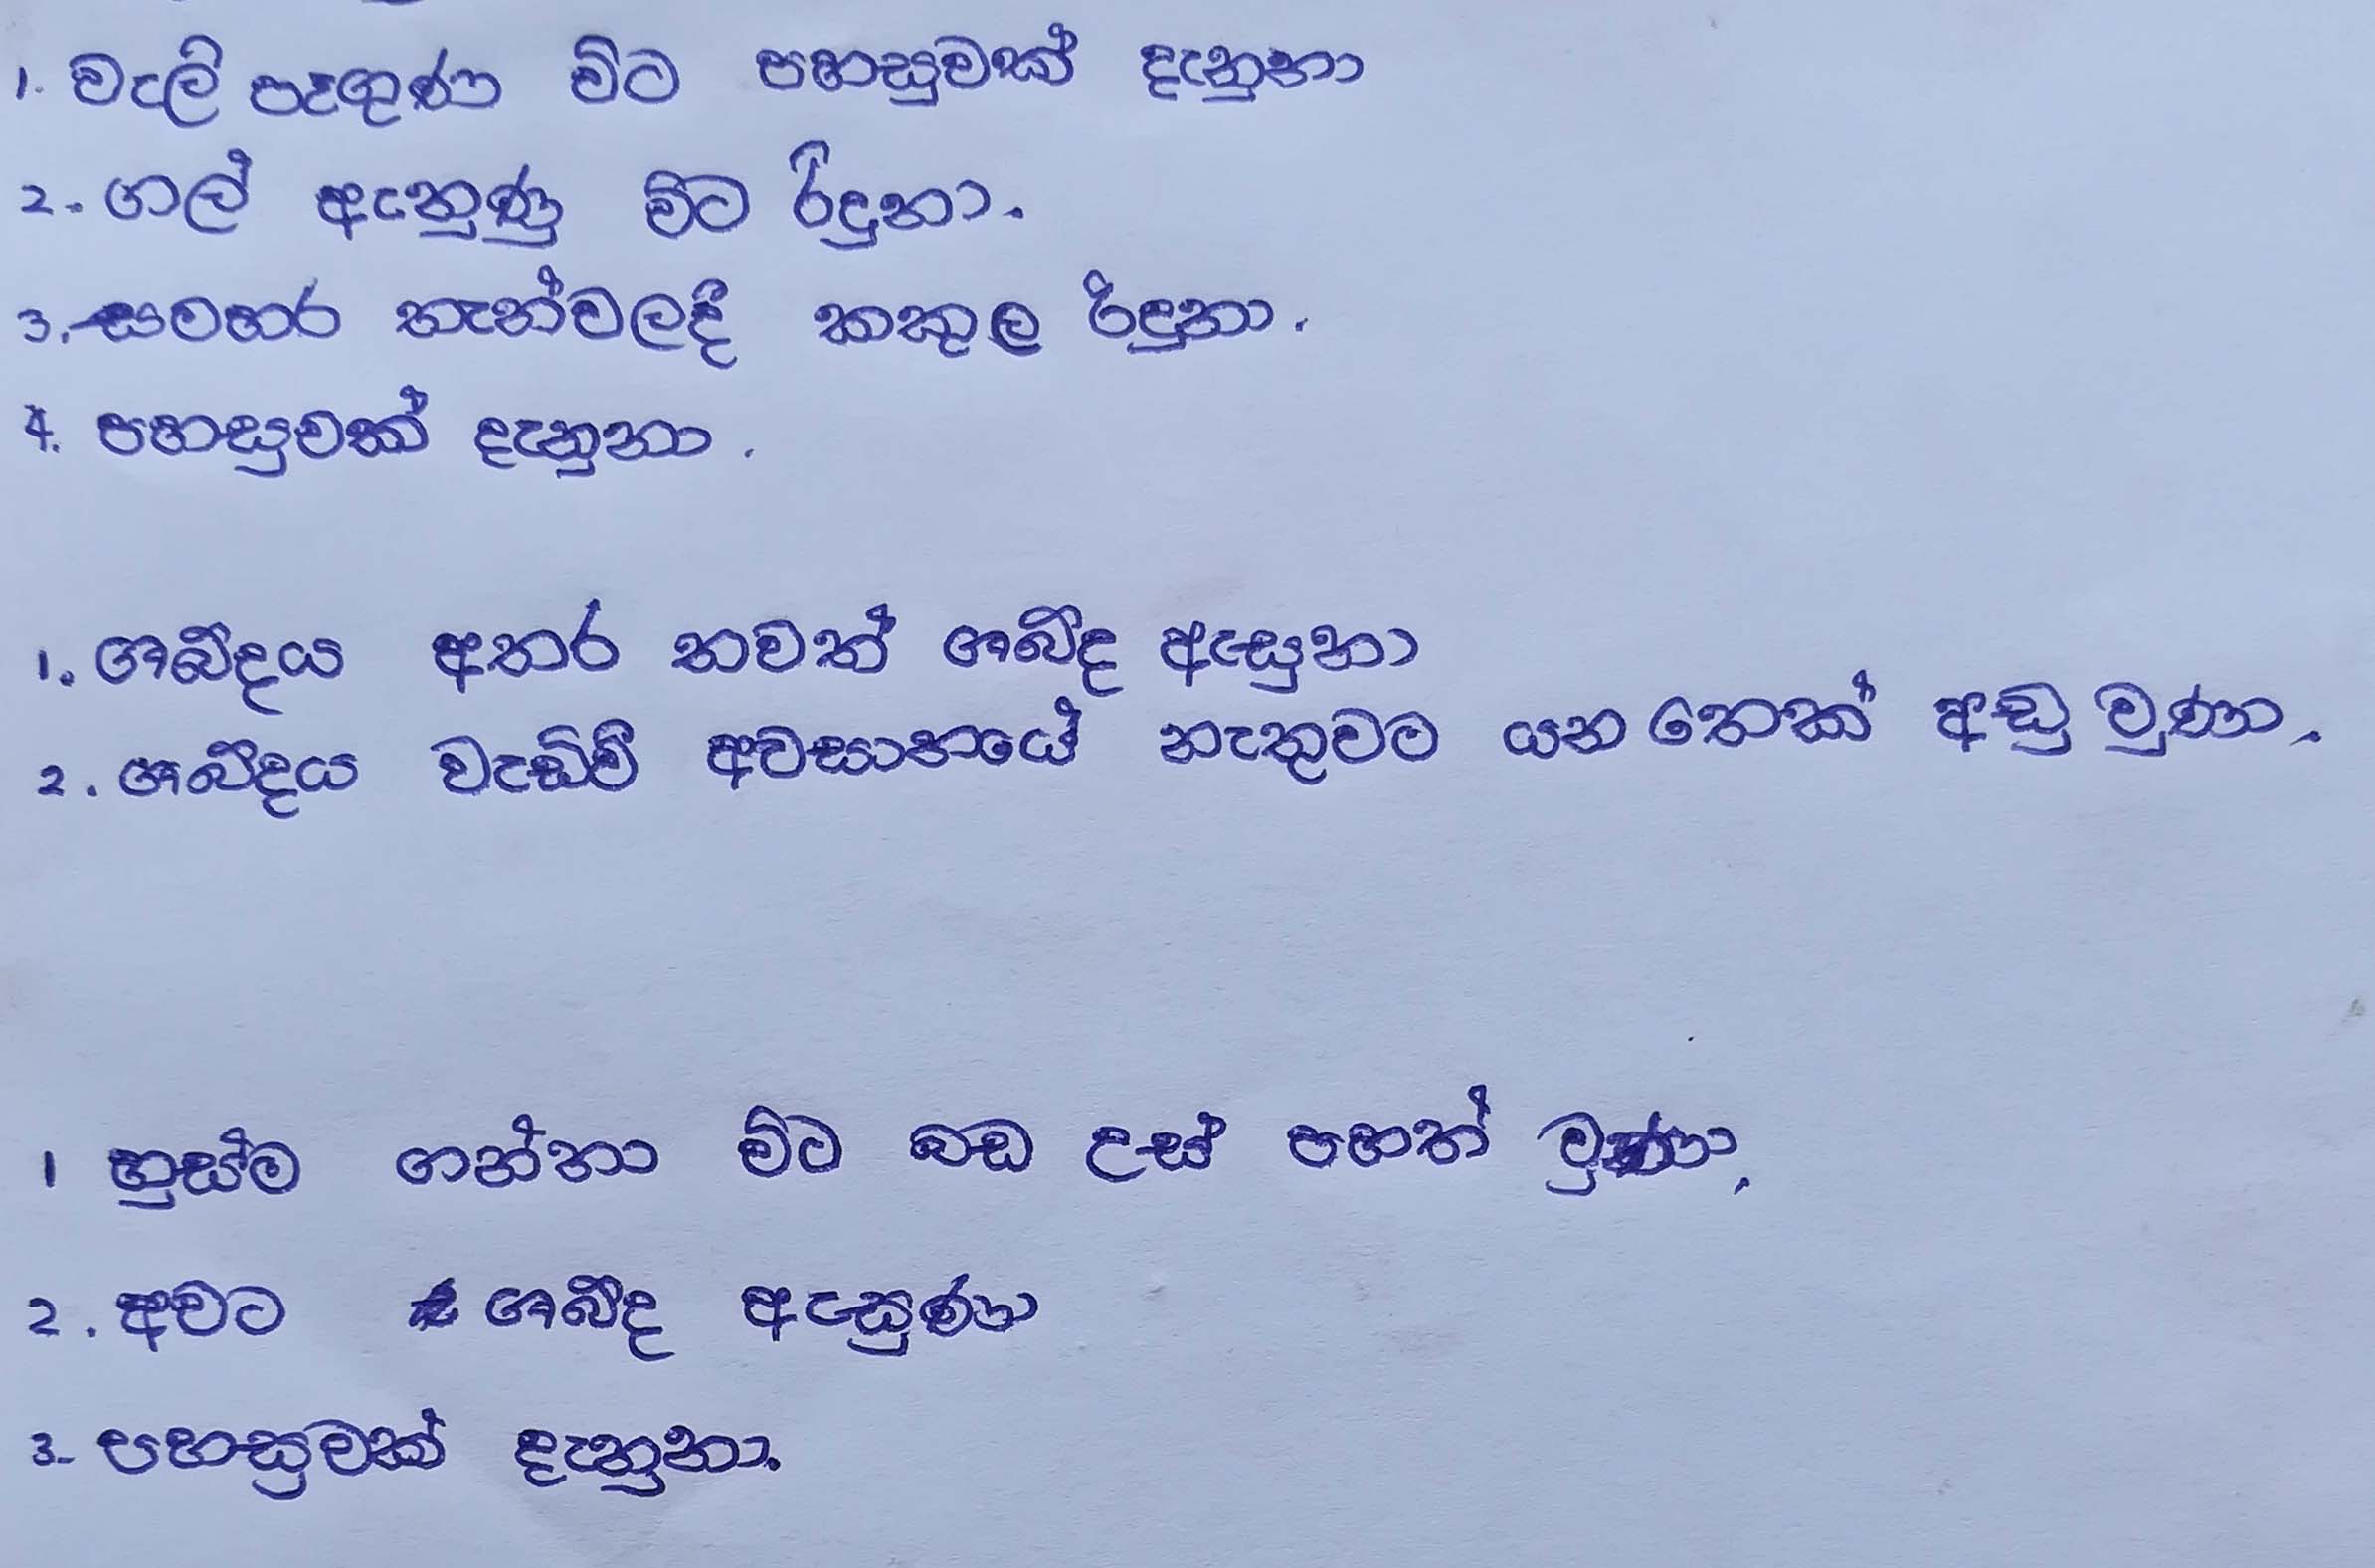 1. වැලි පෑගුණ විට පහසුවක් දැනුනා
2. ගල් ඇනුණු විට රිදුනා.
3. සමහර තැන්වලදී කකුල රිදුනා.
4. පහසුවක් දැනුනා.
1. ශබ්දය අතර තවත් ශබ්ද ඇසුනා
2. ශබ්දය වැඩිවී අවසානයේ නැතුවම යන තෙක් අඩු වුණා.
1 හුස්ම ගන්නා විට බඩ උස් පහත් වුණා.
2. අවට ශබ්ද ඇසුණා
3. පහසුවක් දැනුනා.